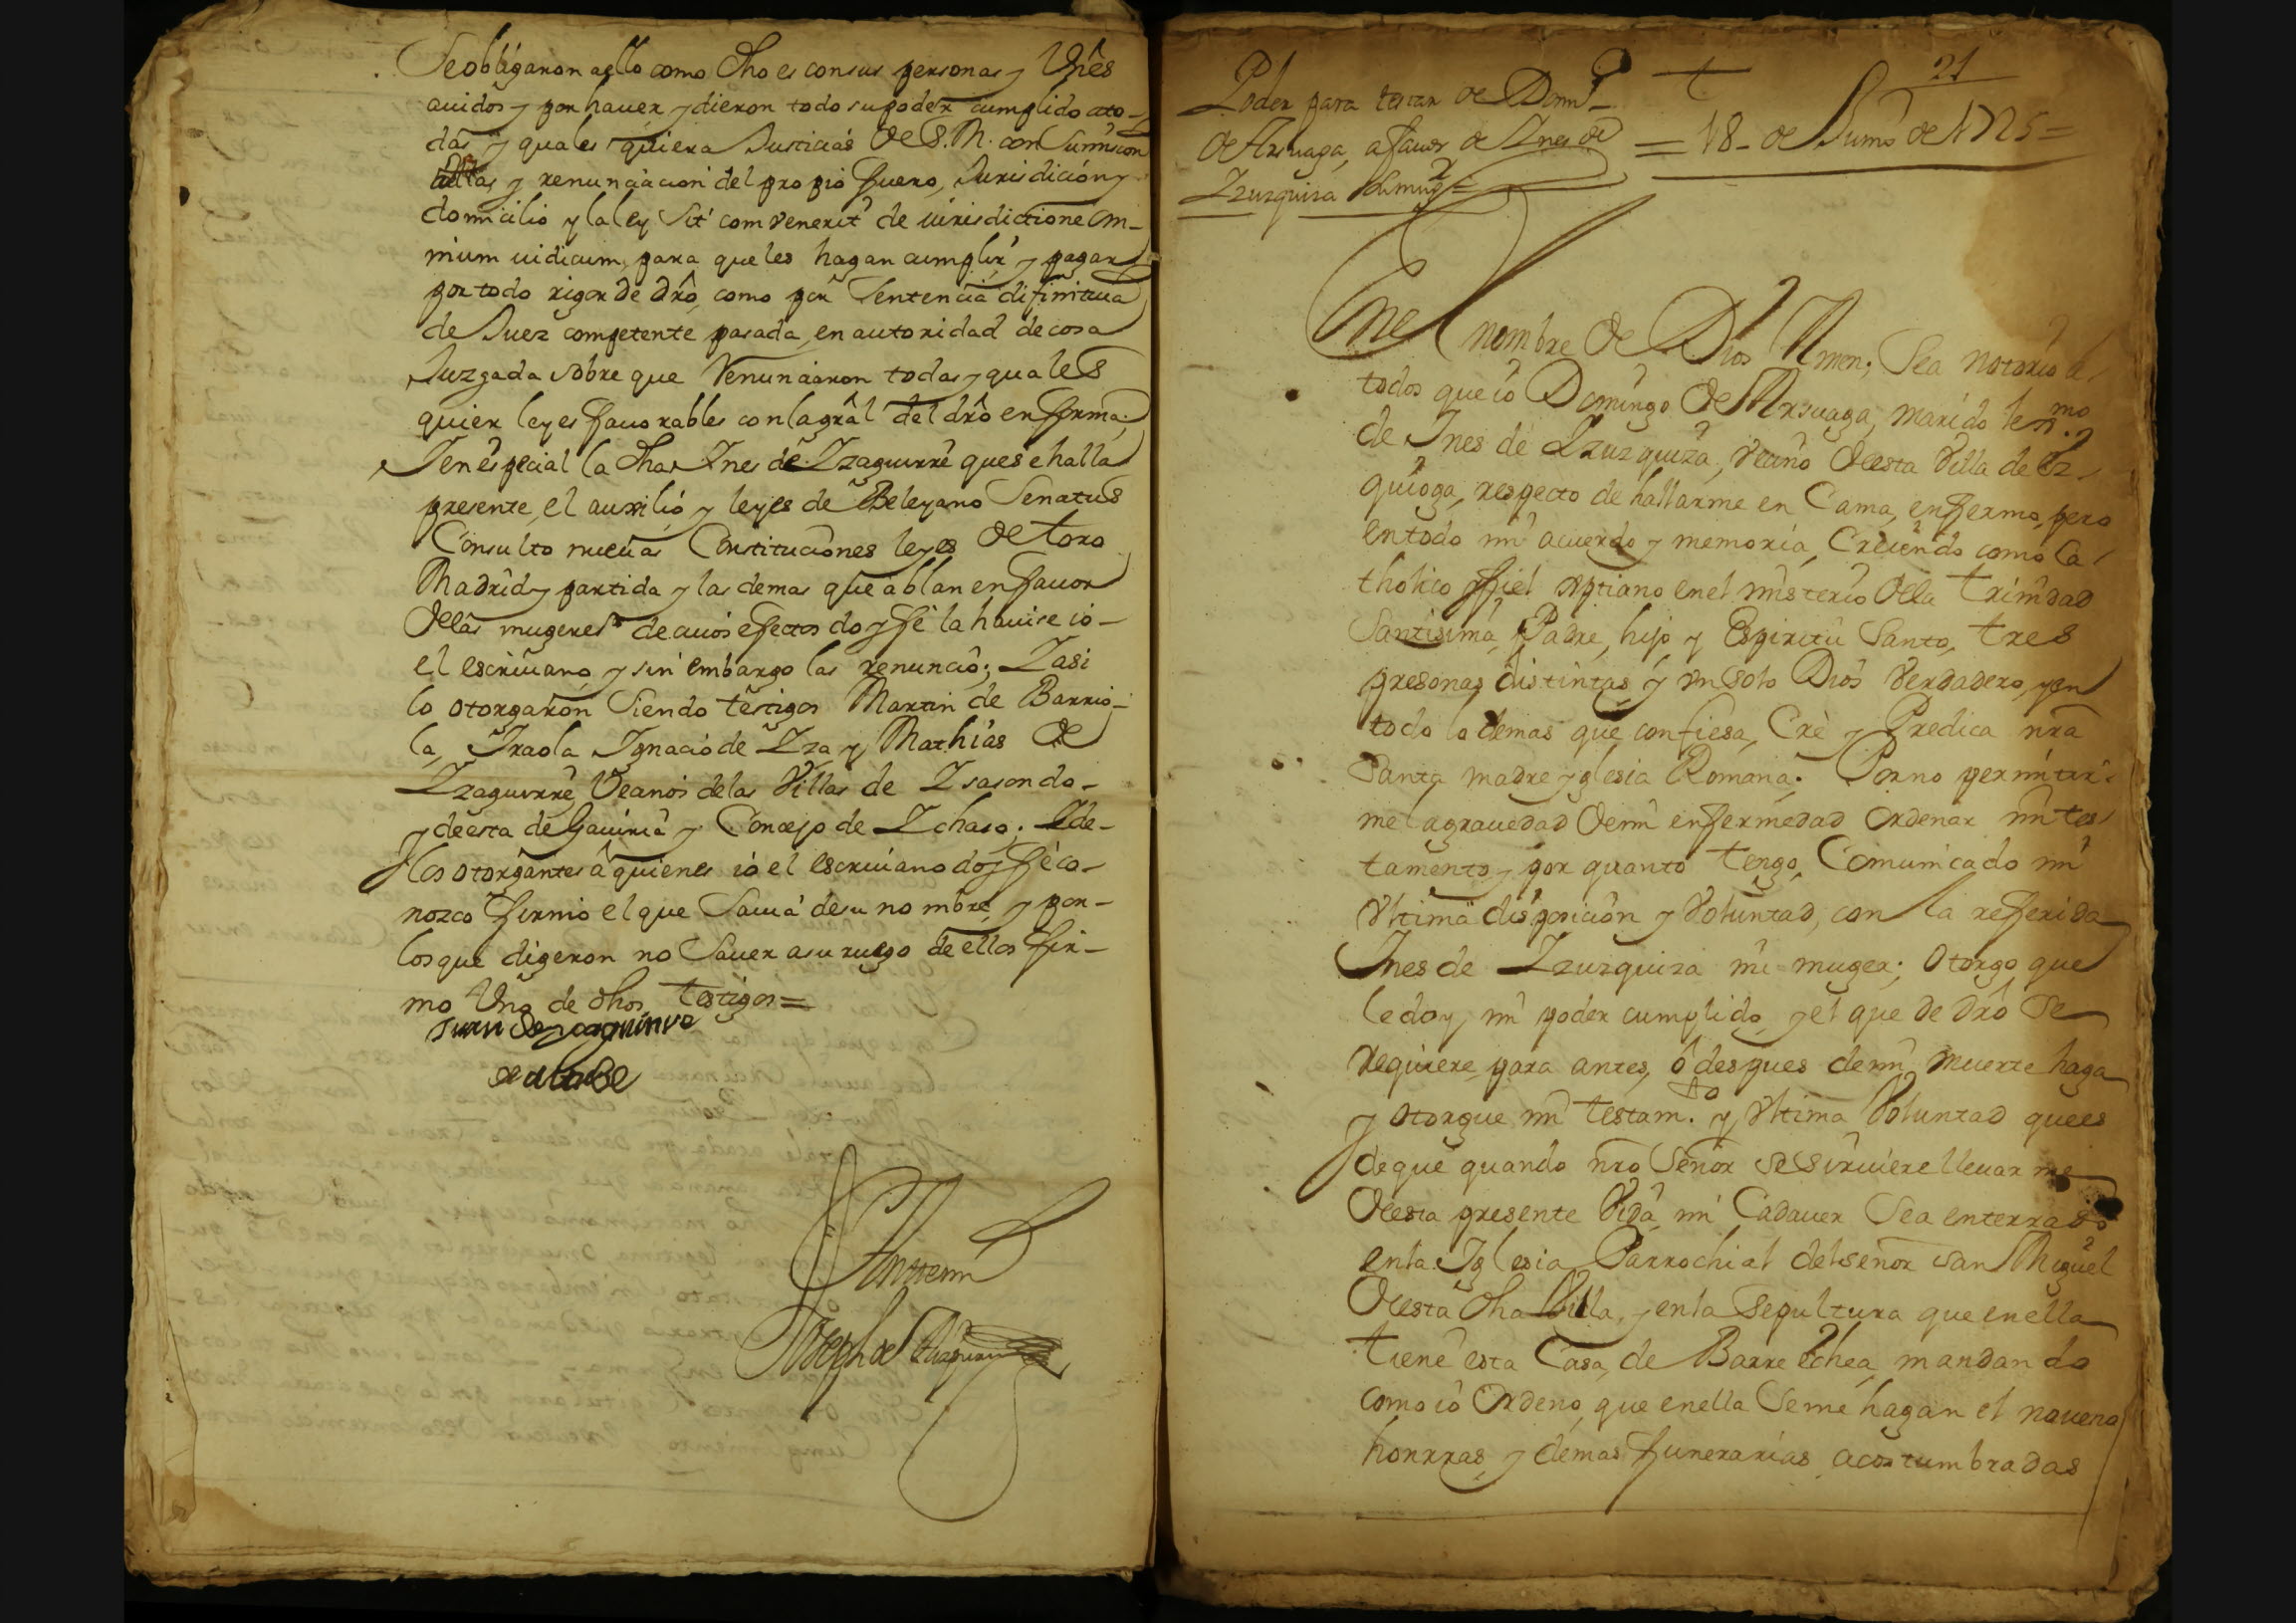 Seobligaron aello como dho es consus personas y Vnês
auidos y por hauer y dieron todo supoder cumplido ato-
das y quales quiera Justicias de S. M. con Summicion
a ellas y renunciacion del propio fuero, Jurisdicion y
domicilio y la ley Sit comvenerit de iurisdictione om-
nium iudicum, para queles hagan cumplir y pagar
por todo rigor de drô como por Sentencia difinitiua
de Juez competente pasada en autoridad de cosa
Juzgada sobre que Renunciaron todas y quales
quier leyes fauorables conlagrâl del drô en forma;
Ien especial la dha Ines de Izaguirre quesehalla
presente, el auxilio y leyes de Beleyano Senatus
Consulto nueuas Constituciones leyes de toro
Madrid y partida y las demas que ablan en fauor
dellas mugeres de cuios efectos doy fê la hauise io-
el escriuano y sin embargo las renunciô; Iasi
lo otorgaron Siendo testigos Martin de Barrio-
la, Iraola Ignacio de Iza y Mathias de
Izaguirre Vecinos delas Villas de Isasondo-
y deesta de Gauiria y Concejo de Ichaso; Ide-
los otorgantes â quienes iô el escriuano doy fê co-
nozco firmô el que Sauia desu nombre y por-
losque digeron no Sauer asu ruego de ellos fir-
mo Vno de dhos testigos=
Juan de Izaguirre
de alabe
Antemi
Joseph de
21
Poder para testar de Domº
de Arsuaga, afauor de Ines de
Izurquiza Sumugr=
= 18- de Junio de 1725=
Enel nombre de Dios Amen; Sea notorio a
todos que iô Domingo de Arsuaga, marido lexmo.
de Ines de Izurquiza, vecino desta Villa de Ez-
quioga, respecto de hallarme en Cama, enfermo, pero
entodo mi acuerdo y memoria, Creiendo como Ca-
tholico y fiel xptiano enel misterio dela trinidad
Santisima, Padre, hijo y Espiritu Santo, tres
presonas distintas y un solo Dios Verdadero, yen
todo lo demas que confiesa, Crê y Predica nrâ
santa madre yglesia Romana; Porno permitir-
me lagrauedad demi enfermedad ordenar mi tes-
tamento y por quanto tengo Comunicado mi
vltima disposicion y Voluntad, con la referida
Ines de Izurquiza mi muger; Otorgo que
le doy, mi poder cumplido y el que de drô se
requiere para antes, ô despues demi muerte haga
y otorgue mi testamto. y vltima Voluntad quees
de que quando nrô Señor se Siruiere lleuar me
desta presente Vida mi Cadauer Sea enterrado
enla Iglesia Parrochial delseñor san Miguel
desta dha Villa, y enla Sepultura que enella
tiene esta Casa, de Barrê echea, mandando
como iô Ordeno que enella Seme hagan el nouena
honrras y demas funerarias acostumbradas